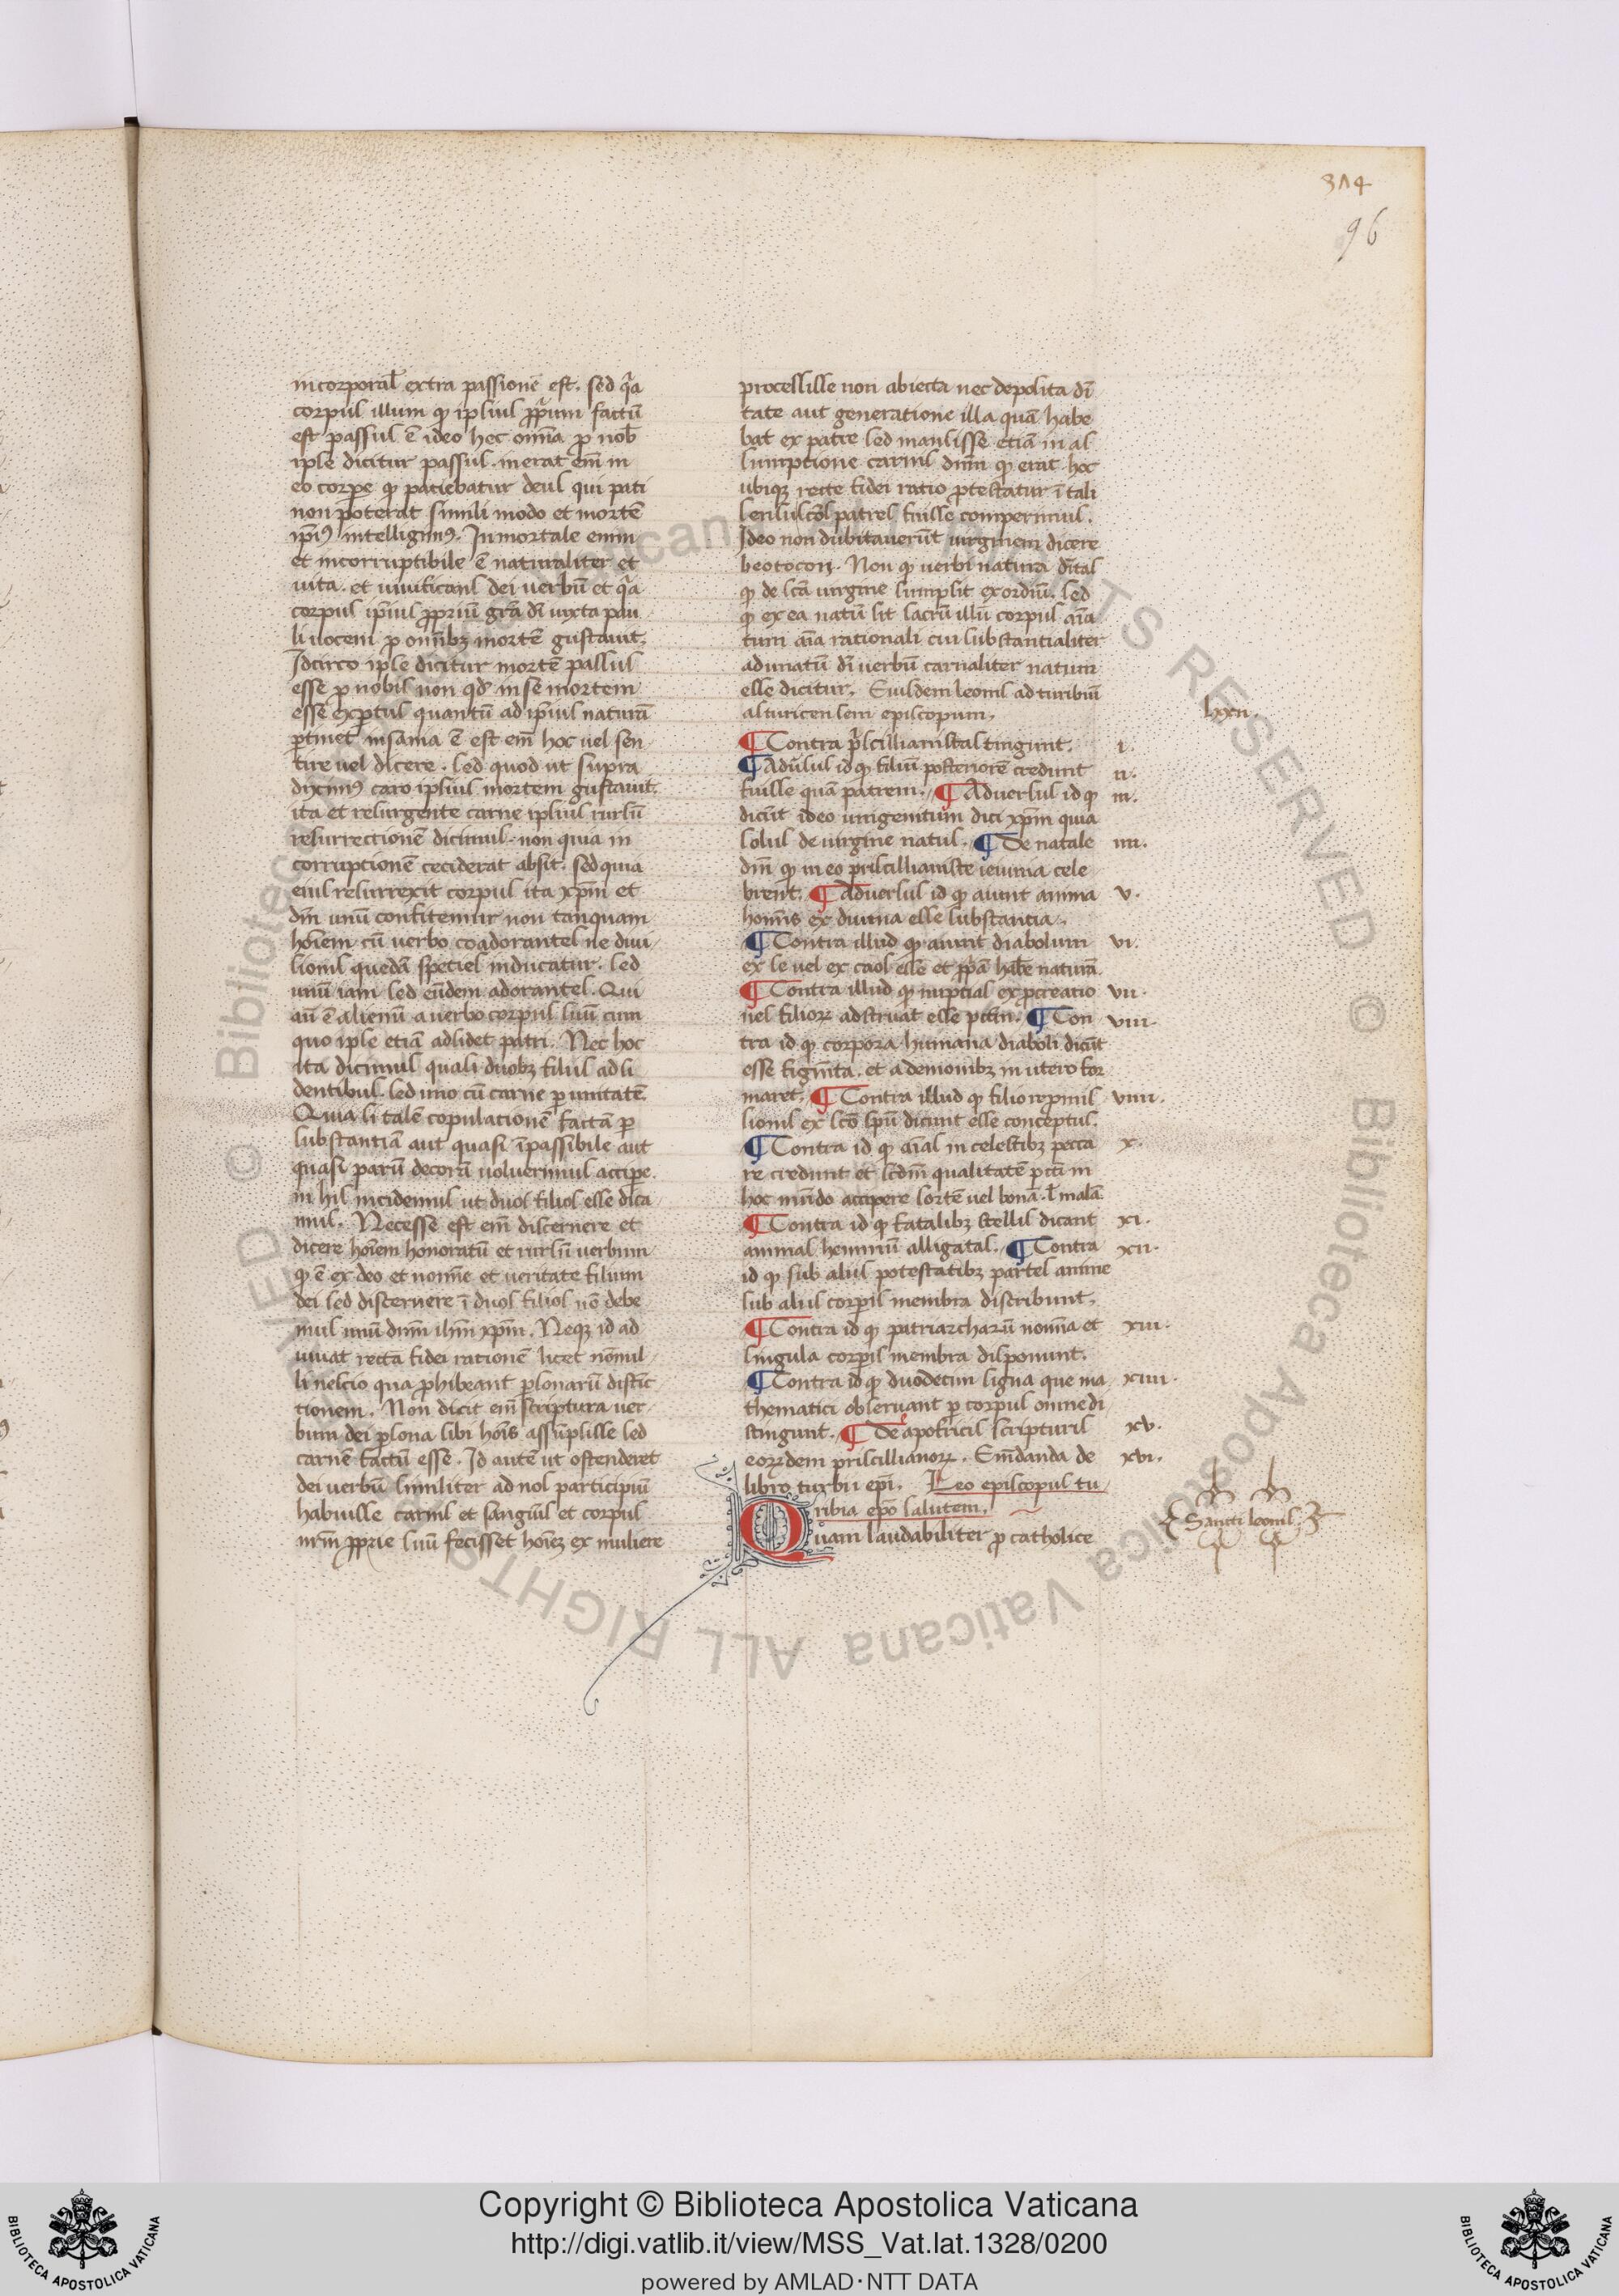 314
96
incorporal̄ extra passionē est. sed qͣa
corpus illum qͦ ipsius ꝓpͥum factū
est passus ē ideo hec om̄ia ꝓ nob̄
ipse dicitur passus. inerat em̄ in
eo corꝑe qͦ patiebatur deus qui pati
non poterat simili modo et mortē
ip̄iꝰ intelligimꝰ. Inmortale enim
et incorruptibile ē naturaliter et
uita. et uiuificans dei uerbū et qͣa
corpus ip̄ius ꝓpriū gr̄a dī iuxta pau
li uocem ꝓ omībꝫ mortē gustauit.
Idcirco ipse dicitur mortē passus
esse ꝓ nobis non qd̄ in se mortem
esse exꝑtus quantū ad ip̄ius naturā
ꝑtinet insania ē est em̄ hoc uel sen
tire uel dicere. sed quod ut supra
diximꝰ caro ipsius mortem gustauit.
ita et resurgente carne ipsius rursū
resurrectionē dicimus. non quia in
corruptionē ceciderat absit. sed quia
eius resurrexit corpus ita xp̄m et
dn̄m unū confitemur non tanquam
hoīem cū uerbo coadorantes ne diui
sionis quedā species inducatur. sed
unū iam sed eūdem adorantes. Qui
au ē alienū a uerbo corpus suū cum
quo ipse etiā adsidet patri. Nec hoc
ita dicimus quasi duobꝫ filiis adsi
dentibus. sed uno cū carne ꝑ unitatē.
Quia si talē copulationē factā ꝑ
substantiā aut quasi īpassibile aut
quasi parū decorā uoluerimus accipe.
in his incidemus ut duos filios esse dica
mus. Necesse est em̄ discernere et
dicere hoīem honoratū et rursū uerbum
qͦ ē ex deo et noīne et ueritate filium
dei sed discernere ī duos filios nō debe
mus unū dn̄m ih̄m xp̄m. Neqꝫ id ad
iuuat rectā fidei rationē licet nōnul
li nescio qua ꝓhibeant ꝑsonarū distīc
tionem. Non dicit em̄ scriptura uer
bum dei ꝑsona sibi hoīs assūpsisse sed
carnē factū esse. Id autē ut ostenderet
dei uerbū similiter ad nos participiū
habuisse carnis et sanguīs et corpus
nr̄m ꝓprie suū fecisset hoīeꝫ ex muliere
processisse non abiecta nec deposita dī
tate aut generatione illa quā habe
bat ex patre sed mansisse etiā in as
sumptione carnis dn̄m qͦ erat hoc
ubiqꝫ recte fidei ratio ꝓtestatur ī tali
sensu sc̄os patres fuisse comperimus.
Ideo non dubitauerūt uirginem dicere
beotocon. Non qͦ uerbi natura dītas
qͦ de sc̄a uirgine sumpsit exordiū. sed
qͦ ex ea natū sit sacrū illū corpus aīa
tum aīa rationali cui substantialiter
adunatū dī uerbū carnaliter natum
esse dicitur. Eiusdem leonis ad turibiū
asturicensem episcopum. lxxii.
¶ Contra pͥscillianistas tingunt. i.
¶ Adūsus id qͦ filiū posteriorē credunt ii.
fuisse quā patrem. ¶ Aduersus id qͦ iii.
dicūt ideo unigenitum dici xp̄m quia
solus de uirgine natus. ¶ De natale iiii.
dn̄i qͦ in eo priscillianiste ieiunia cele
brent. ¶ Aduersus id qͦ aiunt anima v.
homīs ex diuina esse substantia.
¶ Contra illud qͦ aiunt diabolum vi.
ex se uel ex caos esse et ꝓpͥā habē naturā
¶ Contra illud qͦ nuptias ex ꝓcreatio vii.
uel filioꝝ adstruat esse pctm̄. ¶ Con viii.
tra id qͦ corpora humana diaboli dicūt
esse figm̄ta. et a demonibꝫ in utero for
maret. ¶ Contra illud qͦ filio repmis viiii.
sionis ex sc̄o spū dicunt esse conceptus.
¶ Contra id qͦ aīas in celestibꝫ pecca x.
re credunt et sc̄dm̄ qualitatē pcti in
hoc mūdo accipere sortē uel bonā. l̄ malā
¶ Contra id qͦ fatalibꝫ stellis dicant xi.
animas hominū alligatas. ¶ Contra xii.
id qͦ sub aliis potestatibꝫ partes anime
sub aliis corꝑis membra discribunt.
¶ Contra id qͦ patriarcharū nomīa et xiii.
singula corꝑis membra disponunt.
¶ Contra id qͦ duodecim signa que ma xiiii.
thematici obseruant ꝑ corpus omne di
stingunt. ¶ De apocricis scripturis xv.
eorūdem priscillianoꝝ. Emēdanda de xvi.
libro turbii epī. Leo episcopus tu
ribia epō salutem.
Quam laudabiliter ꝓ catholice
Sancti leonis
Copyright © Biblioteca Apostolica Vaticana
http://digi.vatlib.it/view/MSS_Vat.lat.1328/0200
powered by AMLAD·NTT DATA
BIBLIOTECA APOSTOLICA VATICANA
BIBLIOTECA APOSTOLICA VATICANA
© Biblioteca Apostolica Vaticana ALL RIGHTS RESERVED